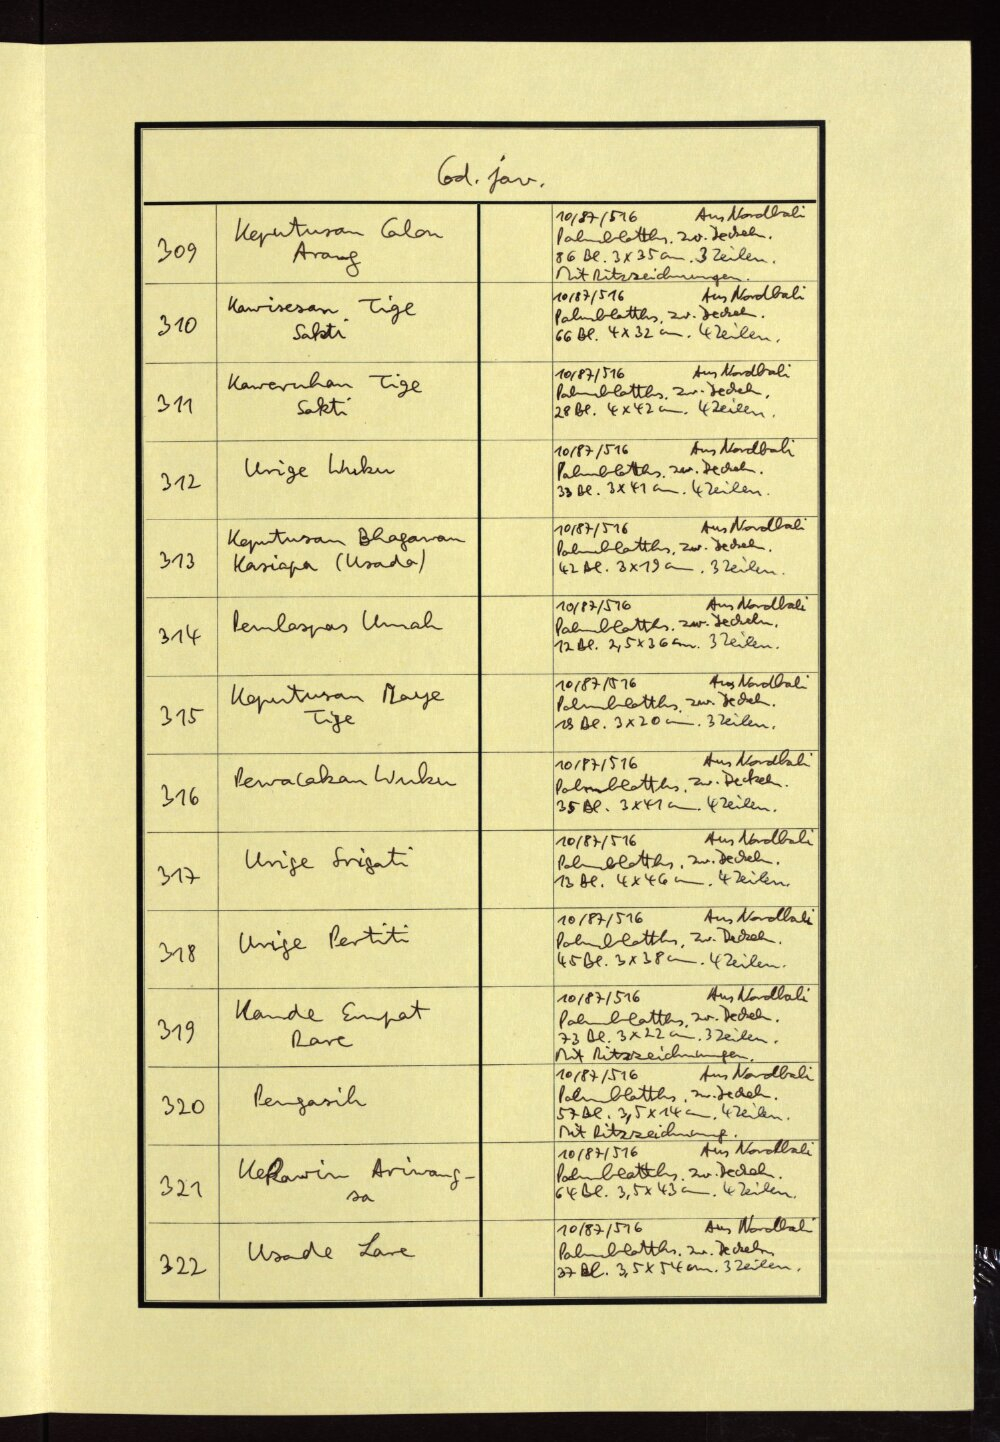 Cod. jav.
309
Keputusan Calon
Arang
10/87/516 Aus Nordbali
Palmblatths. zw. Deckeln.
86 Bl. 3 x 35 cm. 3 Zeilen.
Mit Ritzzeichnungen.
310
Kawisesan Tige
Sakti
10/87/516 Aus Nordbali
Palmblatths. zw. Deckeln.
66 Bl. 4 x 32 cm. 4 Zeilen.
311
Kaweruhan Tige
Sakti
10/87/516 Aus Nordbali
Palmblatths. zw. Deckeln.
28 Bl. 4 x 42 cm. 4 Zeilen.
312
Urige Wuku
10/87/516 Aus Nordbali
Palmblatths. zw. Deckeln.
33 Bl. 3 x 41 cm. 4 Zeilen.
313
Keputusan Bhagawan
Kasiapa (Usada)
10/87/516 Aus Nordbali
Palmblatths. zw. Deckeln.
42 Bl. 3 x 19 cm. 3 Zeilen.
314
Pemlaspas Umah
10/87/516 Aus Nordbali
Palmblatths. zw. Deckeln.
12 Bl. 2,5 x 36 cm. 3 Zeilen.
315
Keputusan Maye
Tige
10/87/516 Aus Nordbali
Palmblatths. zw. Deckeln.
18 Bl. 3 x 20 cm. 3 Zeilen.
316
Pewacakan Wuku
10/87/516 Aus Nordbali
Palmblatths. zw. Deckeln.
35 Bl. 3 x 41 cm. 4 Zeilen.
317
Urige Srigati
10/87/516 Aus Nordbali
Palmblatths. zw. Deckeln.
13 Bl. 4 x 46 cm. 4 Zeilen.
318
Urige Pertiti
10/87/516 Aus Nordbali
Palmblatths. zw. Deckeln.
45 Bl. 3 x 38 cm. 4 Zeilen.
319
Kande Empat
Rare
10/87/516 Aus Nordbali
Palmblatths. zw. Deckeln.
73 Bl. 3 x 22 cm. 3 Zeilen.
Mit Ritzzeichnungen.
320
Pengasih
10/87/516 Aus Nordbali
Palmblatths. zw. Deckeln.
57 Bl. 3,5 x 14 cm. 4 Zeilen.
Mit Ritzzeichnung.
321
Kekawin Ariwang-
sa
10/87/516 Aus Nordbali
Palmblatths. zw. Deckeln.
64 Bl. 3,5 x 43 cm. 4 Zeilen.
322
Usade Lare
10/87/516 Aus Nordbali
Palmblatths. zw. Deckeln
37 Bl. 3,5 x 54 cm. 3 Zeilen.